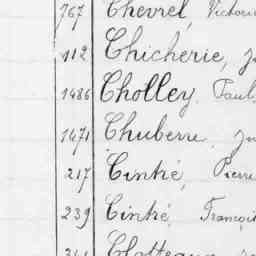 767 Chevrel, Victori
112 Chicherie, J
1486 Cholley, Paul
1471 Chuberre, J
217 Cintré, Pierre
239 Cintré, Françoi
341